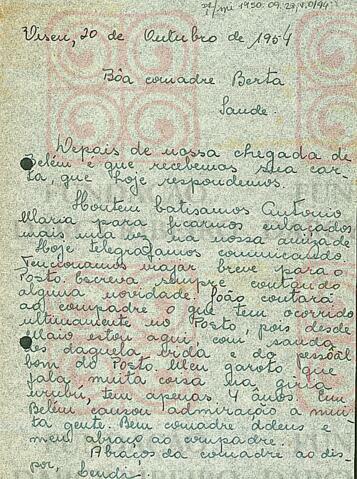 Viseu, 20 de Outubro de 1954
Bôa comadre Berta
Saude.
Depois de nossa chegada de
Belém é que recebemos sua car-
ta que hoje respondemos.
Hontem batisamos Antonio
Maria para ficarmos enlaçados
mais uma vez na nossa amizade
Hoje telegrafamos comunicando.
Tencionamos viajar breve para o
Posto. Escreva sempre contando
alguma novidade. João contará
ao compadre o que tem ocorrido
ultimamente no Posto, pois desde
Maio estou aqui, com sauda
des daquela vida e do pessoal
bom do Posto. Meu garoto que
fala muita coisa na giria
urubú, tem apenas 4 anos. Em
Belém causou admiração a mui
ta gente. Bem comadre adeus e
meu abraço ao compadre.
Abraços da comadre ao dis-
por,